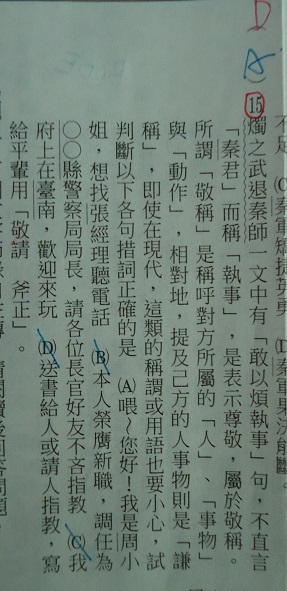 D
A
(C)秦軍矯捷英勇 (D)秦軍果決能斷。
15燭之武退秦師一文中有「敢以煩執事」句，不直言
「秦君」而稱「執事」，是表示尊敬，屬於敬稱。
所謂「敬稱」是稱呼對方所屬的「人」、「事物」
與「動作」，相對地，提及己方的人事物則是「謙
稱」，即使在現代，這類的稱謂或用語也要小心，試
判斷以下各句措詞正確的是 (A)喂～您好！我是周小
姐，想找張經理聽電話 (B)本人榮膺新職，調任為
○○縣警察局局長，請各位長官好友不吝指教 (C)我
府上在臺南，歡迎來玩 (D)送書給人或請人指教，寫
給平輩用「敬請 斧正」。